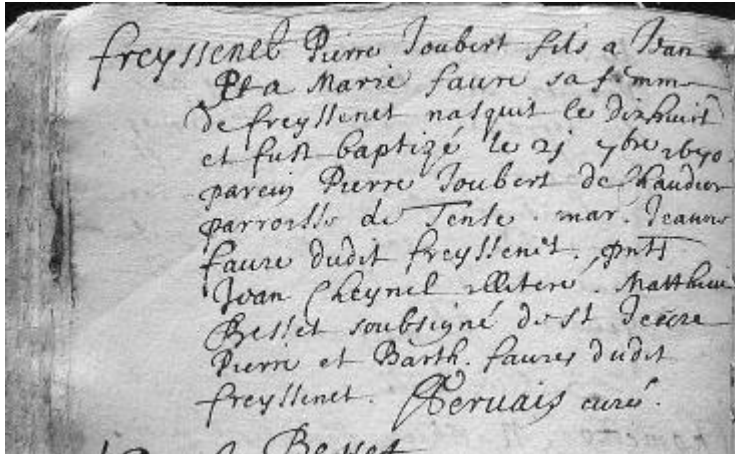 freyssenet Pierre Joubert fils a Jean
Et a Marie faure sa femme
de freyssenet nasquit le dixhuict
et fust baptizé le 21 7bre 1670.
parein Pierre Joubert de Chaudier
parroisse de Tense. mar. Jeanne
faure dudit freyssenet. pntz
Jean Cheynel illiteré. Matthieu
Besset soubsigné de st Jeure
Pierre et Barth. faures dudit
freyssenet. Gervais curé.
Besset